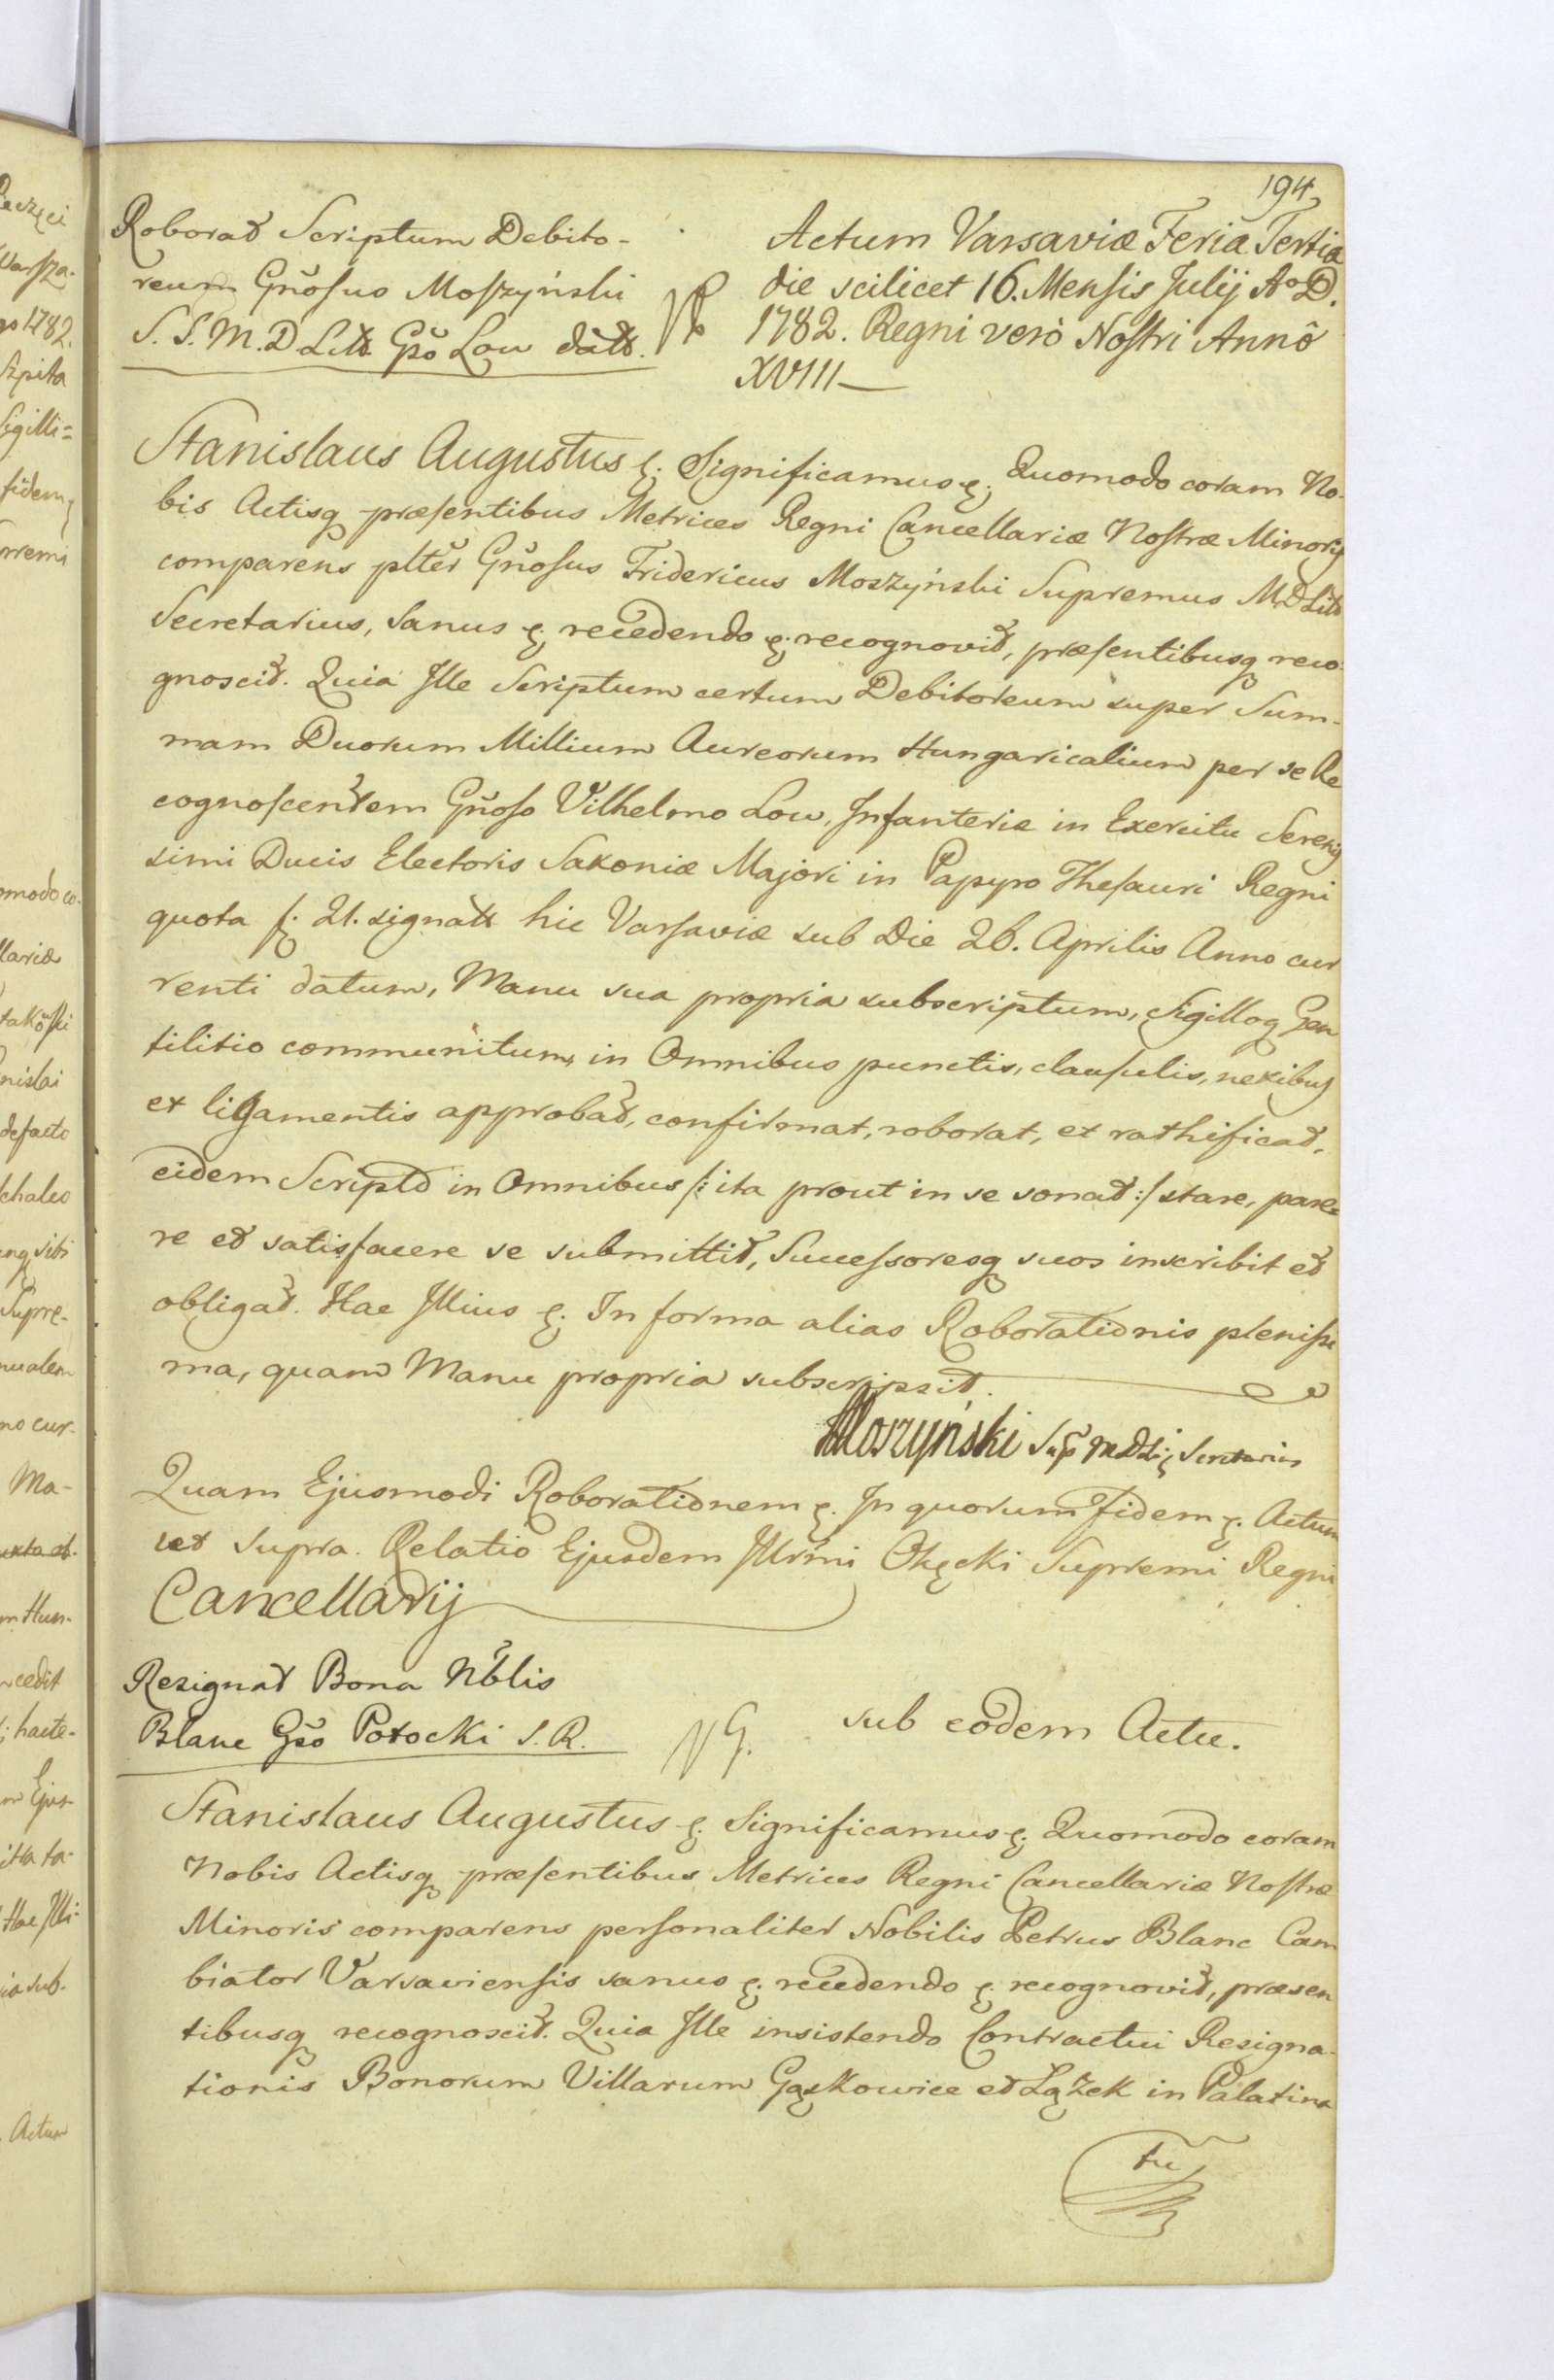 194
Roborat Scriptum Debito-
reum Gnõsus Moszyński
S. S. M. D Litt. Gsõ Low datt.
Actum Varsaviæ Feria Tertia
die scilicet 16. Mensis Julij Aº D.
1782. Regni verò Nostri Annô
XVIII
Stanislaus Augustus &. Significamus &. Quomodo coram No-
bis Actisq præsentibus Metrices Regni Cancellariæ Nostræ Minoris
comparens plter Gnõsus Fridericus Moszyński Supremus M. D Litt
Secretarius, Sanus &. recedendo &. recognovit, præsentibusq reco-
gnoscit. Quia Ille Scriptum certum Debitoreum super Sum-
mam Duorum Millium Aureorum Hungaricalium per se Re
cognoscentem Gnõso Vilhelmo Low, Infanteriæ in Exercitu Serenis
simi Ducis Electoris Saxoniæ Majori in Papyro Thesauri Regni
quota f. 21. signatt hic Varsaviæ sub Die 26. Aprilis Anno cur
renti datum, Manu sua propria subscriptum, Sigilloq Gen
tilitio communitum, in Omnibus punctis, clausulis, nexibus
et ligamentis approbat, confirmat, roborat, et rathificat,
eidem Scripto in Omnibus /: ita prout in se sonat :/ stare, pare=
re et satisfacere se submittit, Successoresq suos inscribit et
obligat. Hac Illius &. In forma alias Roborationis plenissi
ma, quam Manu propria subscripsit.
Moszyński Sup M D Li; Secretarius
Quam Ejusmodi Roborationem &. In quorum Fidem &. Actum
ut supra. Relatio Ejusdem Illrmi Okęcki Supremi Regni
Cancellarij
Resignat Bona Nblis
Blanc Gsõ Potocki S. R.
NG.
sub eodem Actu.
Stanislaus Augustus &. Significamus &. Quomodo coram
Nobis Actisq præsentibus Metrices Regni Cancellariæ Nostræ
Minoris comparens personaliter Nobilis Petrus Blanc Cam
biator Varsaviensis sanus &. recedendo &. recognovit, præsen
tibusq recognoscit. Quia Ille insistendo Contractui Resigna-
tionis Bonorum Villarum Gąskowice et Lążek in Palatina
tu